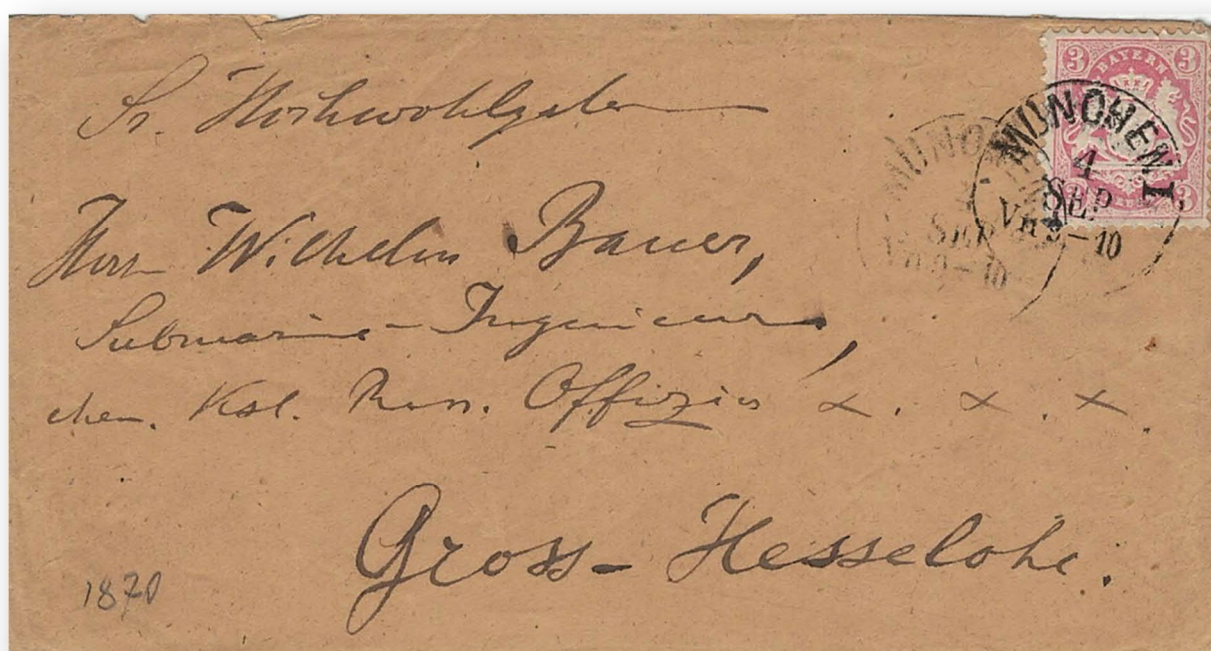 Sr. Hochwohlgeboren
Herrn Wilhelm Bauer,
Submarine-Ingenieur,
ehem. Ksl. Russ. Offizier x. x. x.
Gross-Hesselohe.
1870
3 BAYERN 3
3 3
MÜNCHEN I.
4
SEP
VM 9-10
MÜNCHEN
4
SEP
VM 9-10